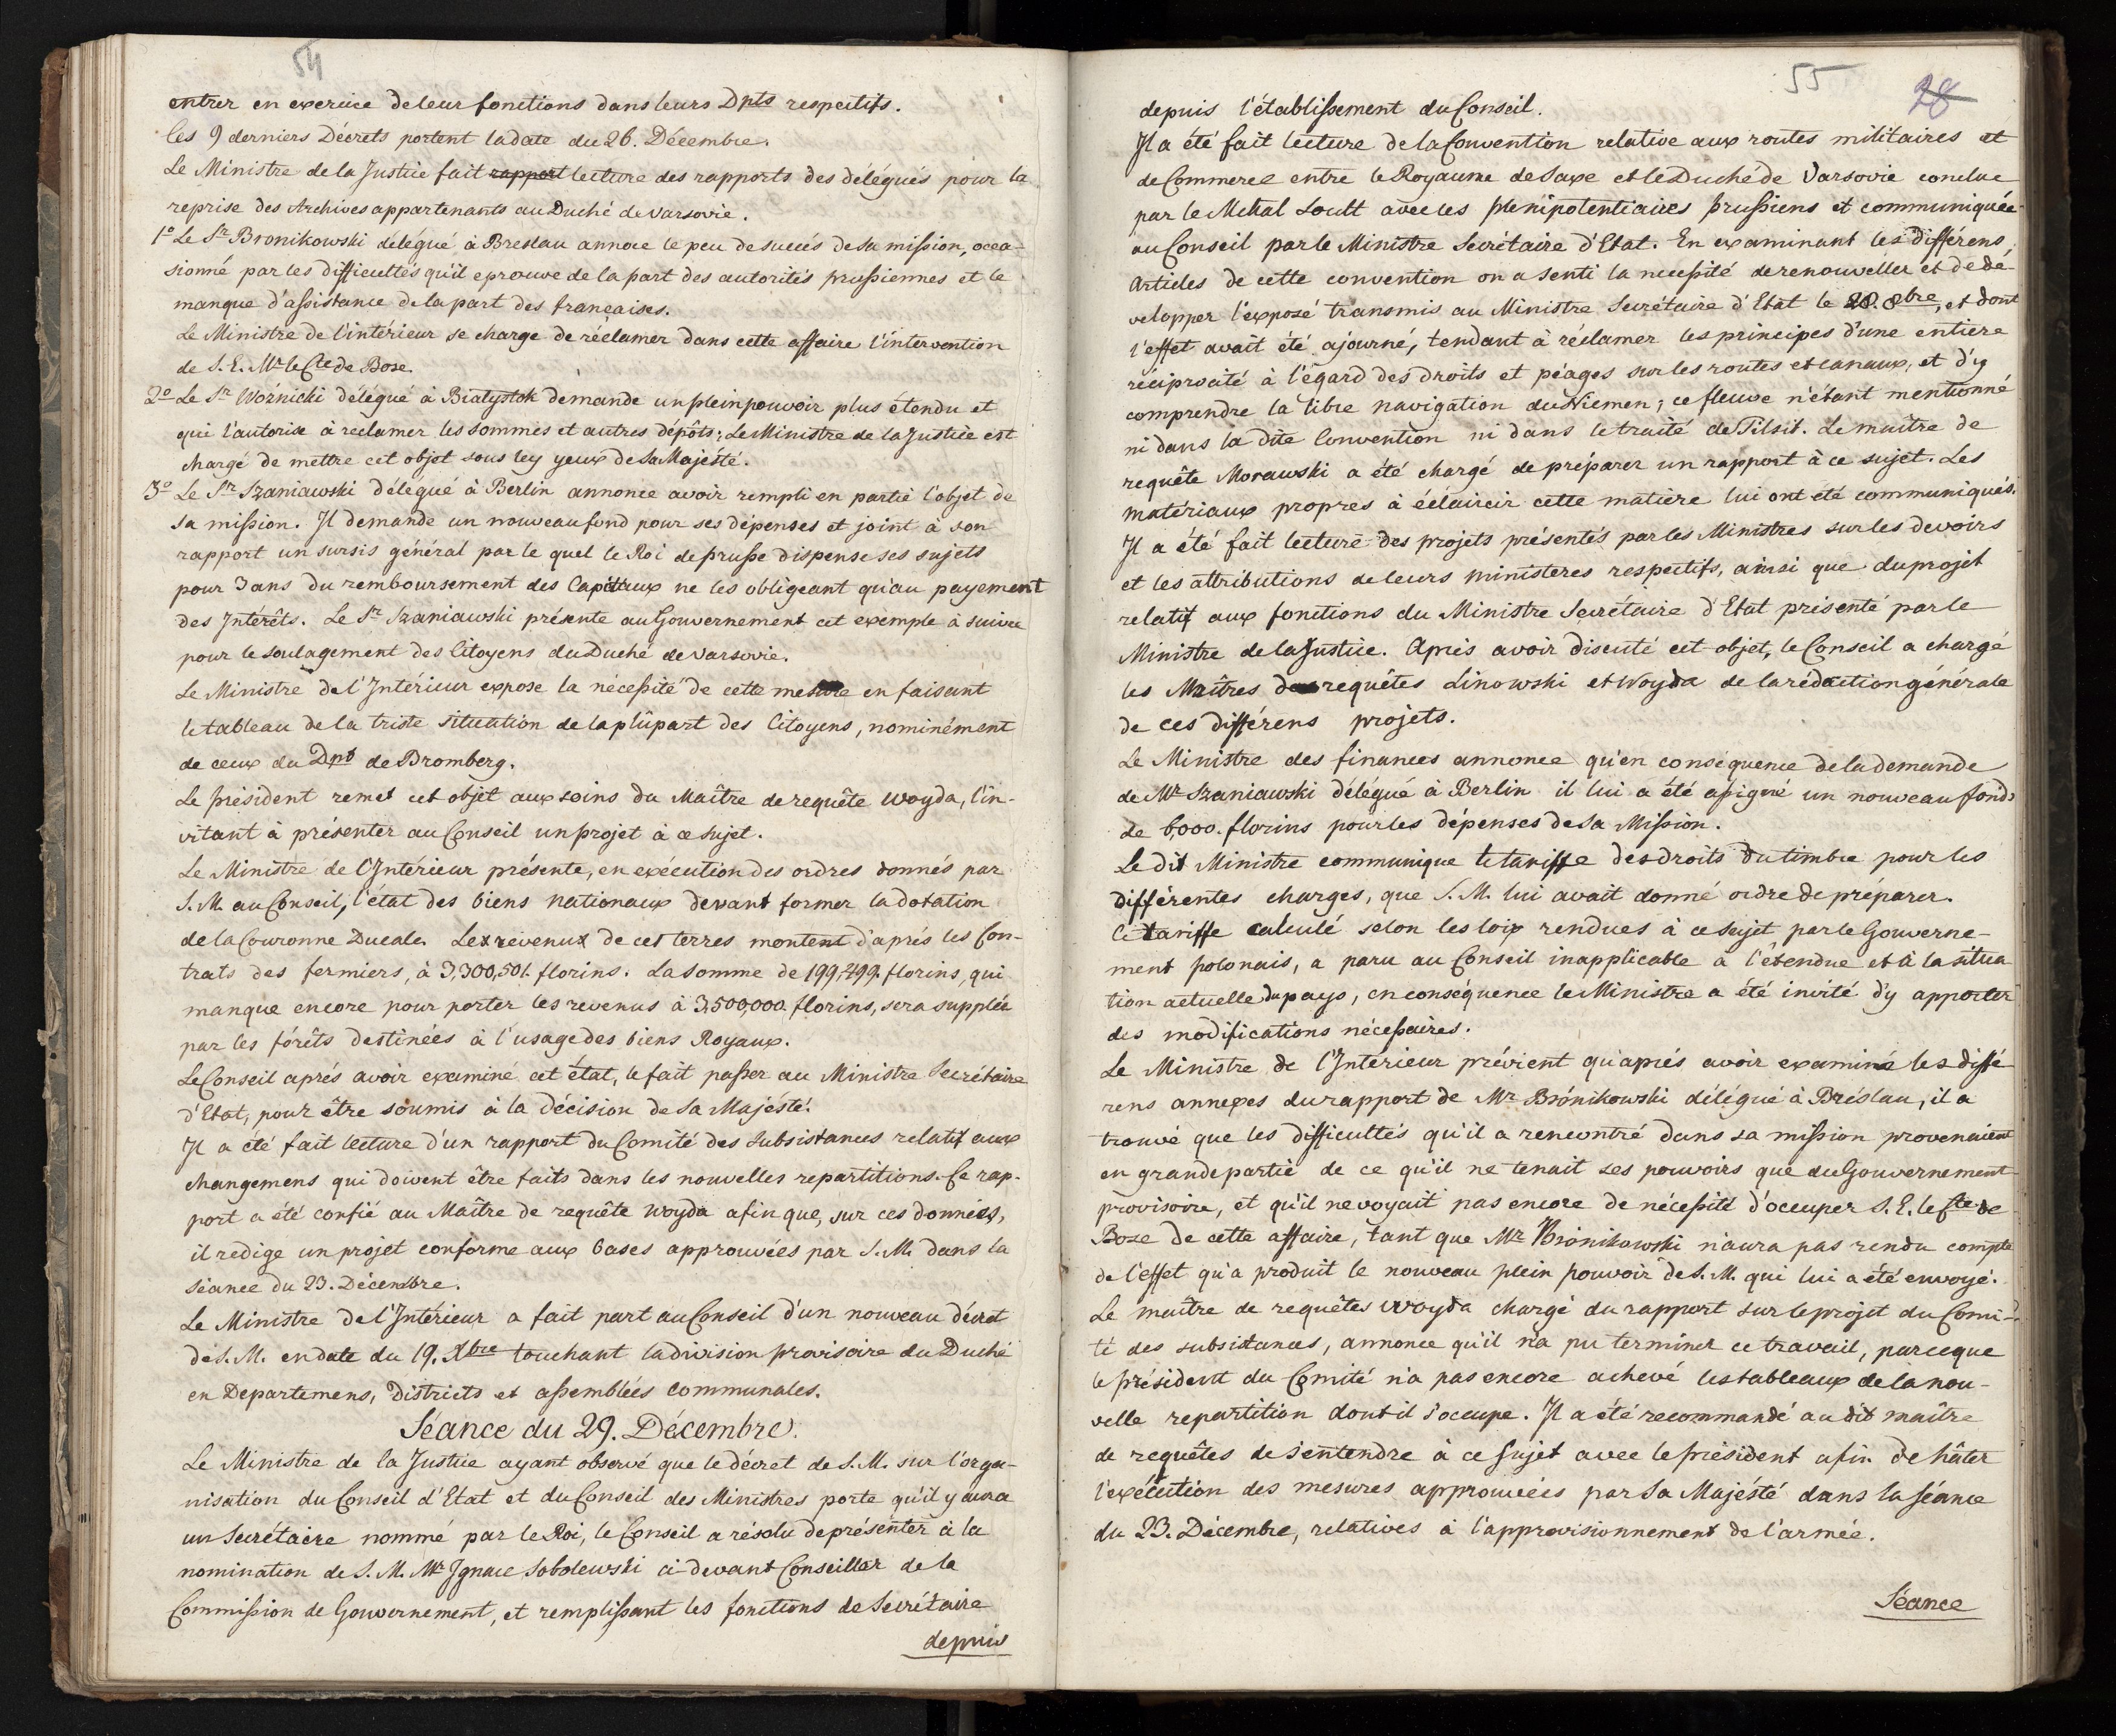 54
entrer en exercice de leur fonctions dans leurs Dpts respectifs.
les 9 derniers Décrets portent la date du 26. Décembre.
Le Ministre de la Justice fait rapport lecture des rapports des délégués pour la
reprise des Archives appartenants au Duché de Varsovie.
1º Le Sr Bronikowski délégué à Breslau annoce le peu de succés de sa mission, occa-
sionné par les difficultés qu'il eprouve de la part des autorités prussiennes et le
manque d'assistance de la part des françaises.
Le Ministre de l'intérieur se charge de réclamer dans cette affaire l'intervention
de S. E. Mr le Cte de Bose.
2º Le Sr Woźnicki délégué à Białystok demande un plein pouvoir plus étendu et
qui l'autorise à reclamer les sommes et autres dépôts; Le Ministre de la Justice est
chargé de mettre cet objet sous ley yeux de Sa Majésté.
3º Le Sr Szaniawski délégué à Berlin annonce avoir rempli en partie l'objet de
sa mission. Il demande un nouveau fond pour ses dépenses et joint à son
rapport un sursis général par le quel le Roi de prusse dispense ses sujets
pour 3 ans du remboursement des Capitaux ne les obligeant qu'au payement
des Intérêts. Le Sr Szaniawski présente au Gouvernement cet exemple à suivre
pour le soulagement des Citoyens du Duché de Varsovie.
Le Ministre de l'Intérieur expose la nécessité de cette mesure en faisant
le tableau de la triste situation de la plûpart des Citoyens, nominément
de ceux du Dpt de Bromberg.
Le président remet cet objet aux soins du Maître de requête Woyda, l'in-
vitant à présenter au Conseil un projet à ce sujet.
Le Ministre de l'Intérieur présente, en exécution des ordres donnés par
S. M. au Conseil, l'état des biens nationaux devant former la dotation
de la Couronne Ducale. Les revenus de ces terres montent d'aprés les Con-
trats des fermiers, à 3,300,501. florins. La somme de 199,499. florins, qui
manque encore pour porter les revenus à 3,500,000. florins, sera supplée
par les forêts destinées à l'usage des biens Royaux.
Le Conseil aprés avoir examiné cet état, le fait passer au Ministre Secrétaire
d'Etat, pour être soumis à la décision de Sa Majésté.
Il a été fait lecture d'un rapport du Comité des Subsistances relatif aux
changemens qui doivent être faits dans les nouvelles repartitions. Ce rap-
port a été confié au Maître de requête Woyda afin que, sur ces données,
il redige un projet conforme aux bases approuvées par S. M. dans la
séance du 23. Décembre.
Le Ministre de l'Intérieur a fait part au Conseil d'un nouveau décret
de S. M. en date du 19. Xbre touchant la division provisoire du Duché
en Departemens, Districts et assemblées communales.
Séance du 29. Décembre.
Le Ministre de la Justice ayant observé que le décret de S. M. sur l'orga-
nisation du Conseil d'Etat et du Conseil des Ministres porte qu'il y aura
un Secrétaire nommé par le Roi, le Conseil a résolu de présenter à la
nomination de S. M. Mr Ignace Sobolewski ci-devant Conseiller de la
Commission de Gouvernement, et remplissant les fonctions de Secrétaire
depuis
55
28
depuis l'établissement du Conseil.
Il a été fait lecture de la Convention relative aux routes militaires et
de Commerce entre le Royaume de Saxe et le Duché de Varsovie conclue
par le Mchal Soult avec les plenipotentiaires prussiens et communiquée
au Conseil par le Ministre Secrétaire d'Etat. En examinant les différens
articles de cette convention on a senti la necessité de renouveller et de dé-
velopper l'exposé transmis au Ministre Secrétaire d'Etat le 28. 8bre, et dont
l'effet avait été ajourné, tendant à réclamer les principes d'une entiere
réciprocité à l'égard des droits et péages sur les routes et canaux, et d'y
comprendre la libre navigation du Niemen; ce fleuve n'étant mentionné
ni dans la dite Convention ni dans le traité de Tilsit. Le maître de
requête Morawski a été chargé de préparer un rapport à ce sujet. Les
matériaux propres à éclaircir cette matière lui ont été communiqués.
Il a été fait lecture des projets présentés par les Ministres sur les devoirs
et les attributions de leurs ministeres respectifs, ainsi que du projet
relatif aux fonctions du Ministre Secrétaire d'Etat présenté par le
Ministre de la Justice. Après avoir discuté cet objet, le Conseil a chargé
les Maîtres des requêtes Linowski et Woyda de la rédaction générale
de ces différens projets.
Le Ministre des finances annonce qu'en conséquence de la demande
de Mr Szaniawski délégué à Berlin il lui a été assigné un nouveau fonds
de 6,000. florins pour les dépenses de sa Mission.
Le dit Ministre communique le tariffe des droits du timbre pour les
différentes charges, que S. M. lui avait donné ordre de préparer.
Ce tariffe calculé selon les loix rendues à ce sujet par le Gouverne-
ment polonais, a paru au Conseil inapplicable à l'étendue et à la situa
tion actuelle du pays, en conséquence le Ministre a été invité d'y apporter
des modifications nécessaires.
Le Ministre de l'Intérieur prévient qu'aprés avoir examiné les diffé
rens annexes du rapport de Mr Brónikowski délégué à Bréslau, il a
trouvé que les difficultés qu'il a rencontré dans sa mission provenaient
en grande partie de ce qu'il ne tenait ses pouvoirs que du Gouvernement
provisoire, et qu'il ne voyait pas encore de nécessité d'occuper S. E. le Cte de
Bose de cette affaire, tant que Mr Brónikowski n'aura pas rendu compte
de l'effet qu'a produit le nouveau plein pouvoir de S. M. qui lui a été envoyé.
Le maître de requêtes Woyda chargé du rapport sur le projet du Comi-
té des subsistances, annonce qu'il n'a pu terminer ce travail, parceque
le président du Comité n'a pas encore achevé les tableaux de la nou-
velle repartition dont il s'occupe. Il a été recommandé au dit maître
de requêtes de s'entendre à ce sujet avec le président afin de hâter
l'exécution des mesures approuvées par Sa Majésté dans la séance
du 23. Décembre, relatives à l'approvisionnement de l'armée.
Séance